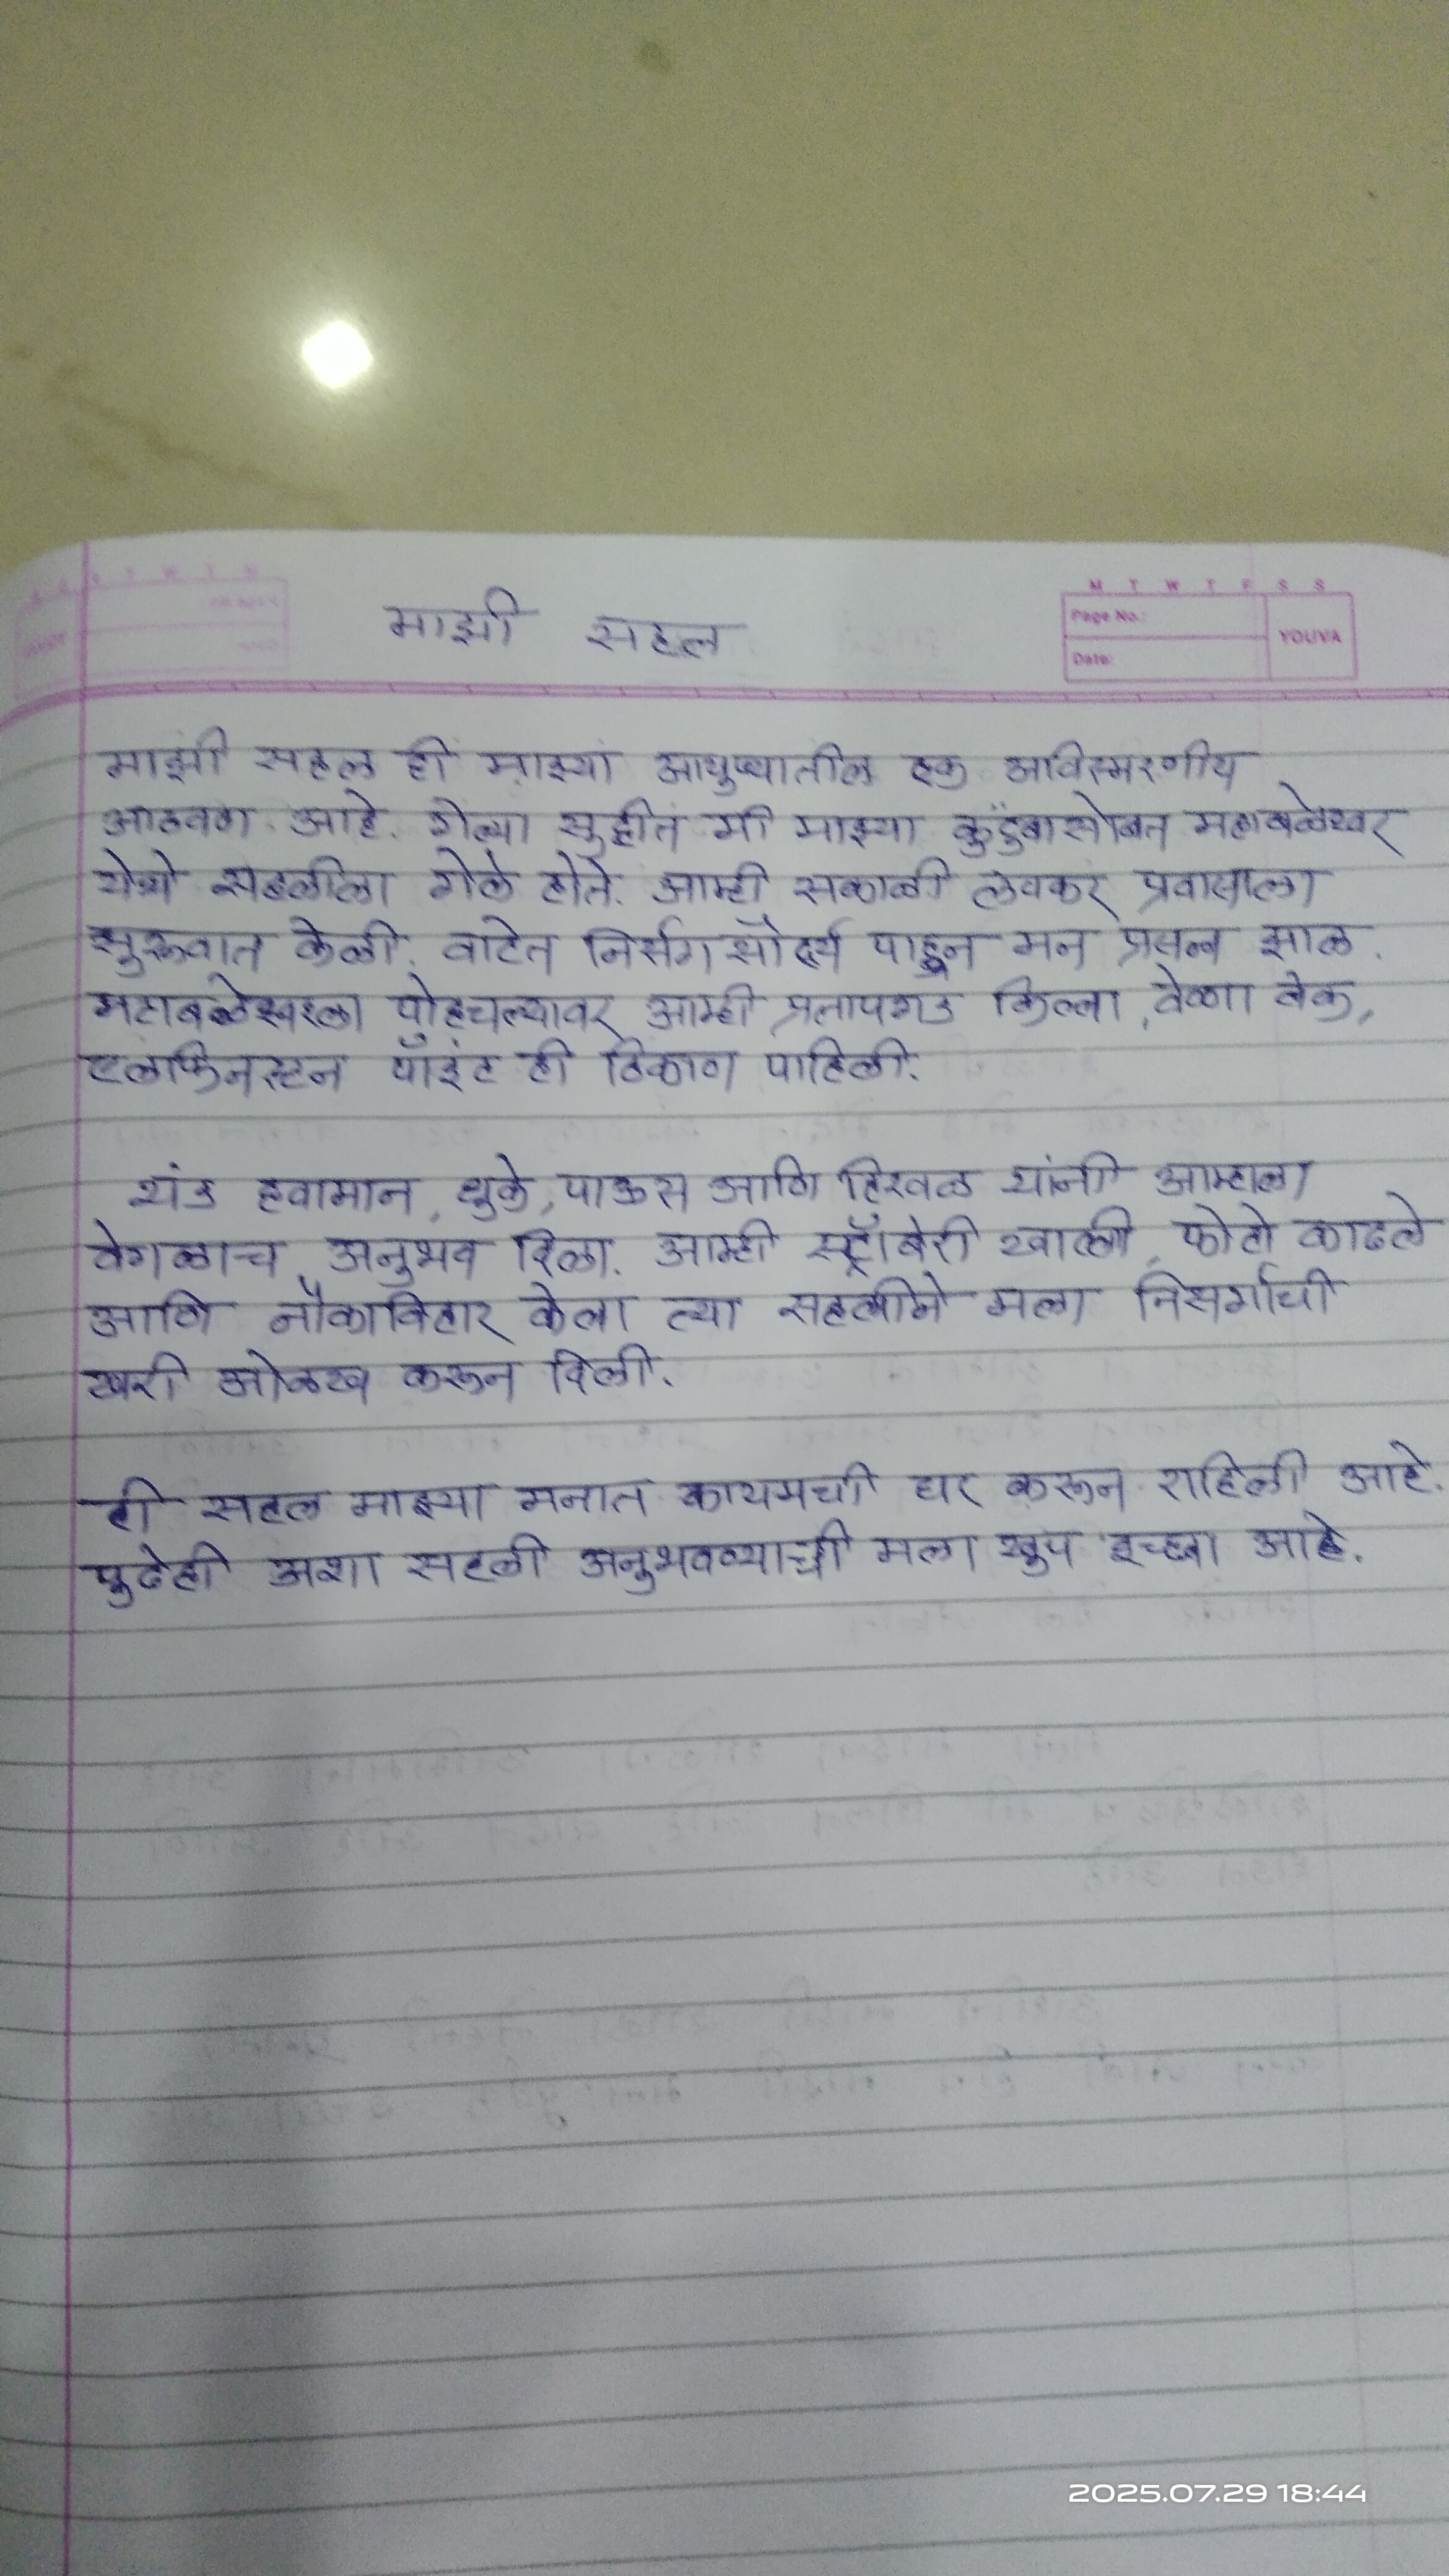 माझी सहल
M T W T F S S
Page No.:
YOUVA
Date:
माझी सहल ही माझ्या आयुष्यातील एक अविस्मरणीय
आठवण आहे. गेल्या सुट्टीत मी माझ्या कुटुंबासोबत महाबळेश्वर
येथे सहलीला गेले होते. आम्ही सकाळी लवकर प्रवासाला
सुरुवात केली. वाटेत निर्सगसौंदर्य पाहून मन प्रसन्न झाल.
महाबळेश्वरला पोहचल्यावर आम्ही प्रतापगड किल्ला, वेण्णा लेक,
एलफिनस्टन पॉइंट ही ठिकाण पाहिली.
थंड हवामान, धुके, पाऊस आणि हिरवळ यांनी आम्हाला
वेगळाच अनुभव दिला. आम्ही स्ट्रॉबेरी खाल्ली, फोटो काढले
आणि नौकाविहार केला त्या सहलीने मला निसर्गाची
खरी ओळख करून दिली.
ही सहल माझ्या मनात कायमची घर करून राहिली आहे.
पुढेही अशा सहली अनुभवण्याची मला खुप इच्छा आहे.
2025.07.29 18:44